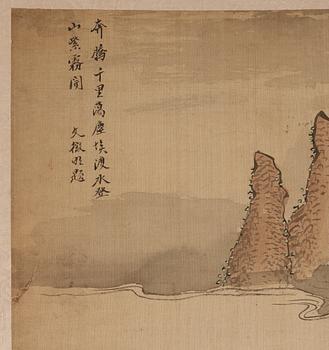 奔騰千里蕩塵埃渡水登
山紫霧開
文徵明題